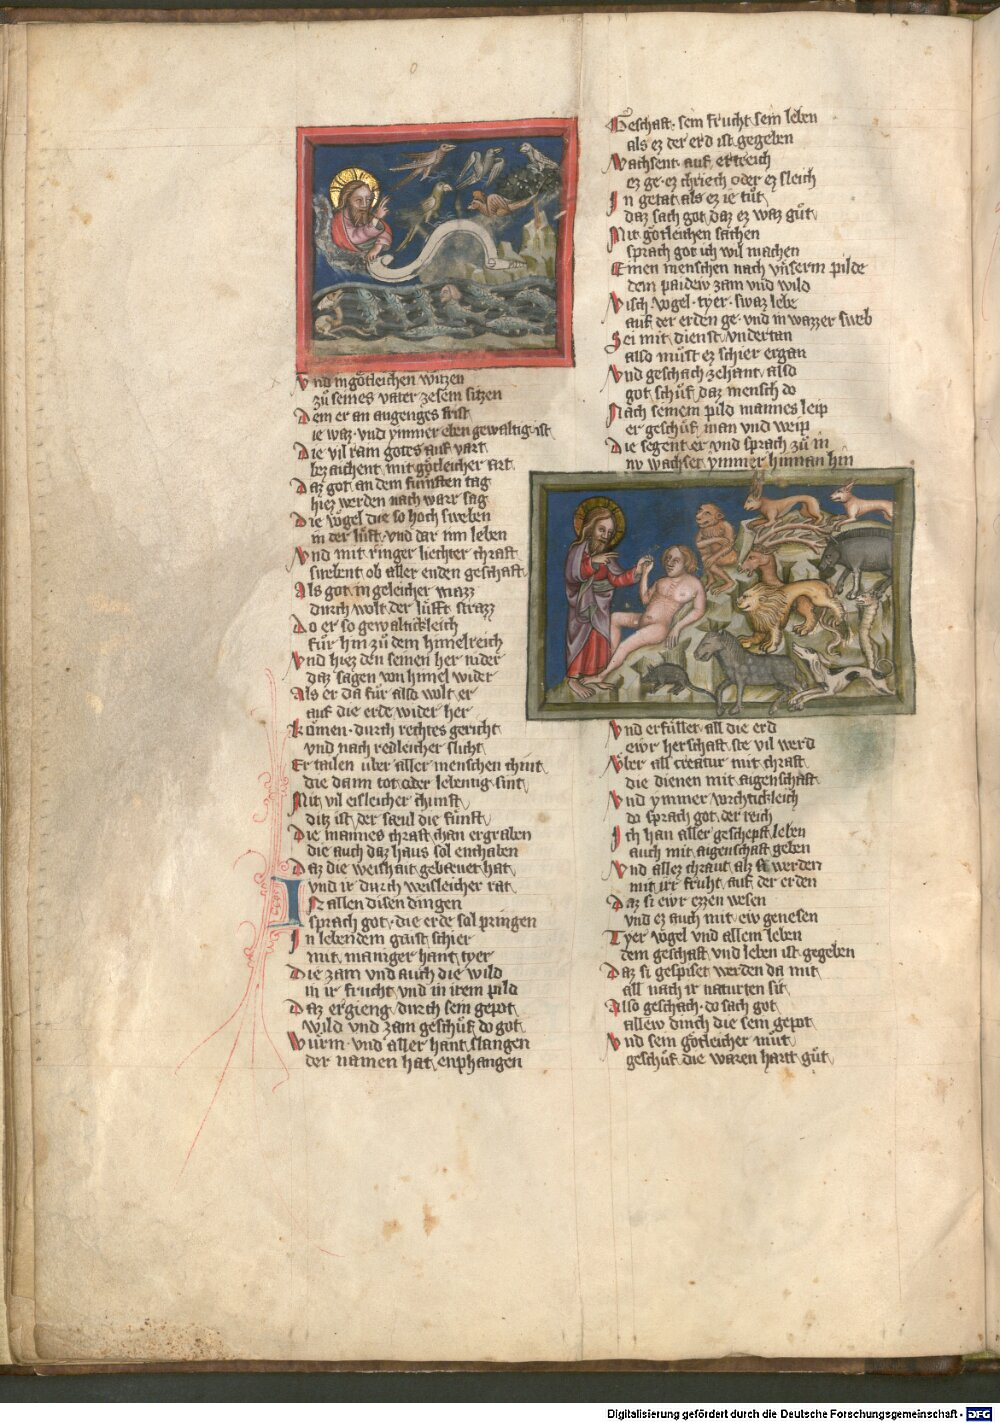 vnd in gotleichen witzen
zů seines vater zesem sitzen
Dem er an angenges frist
ie waz vnd ymmer eben gewaltig ist
Die vil ram gotes auf vart
bezaichent mit gotleicher art
Daz got an dem fůnften tag
hiez werden nach warr sag
Die vögel die so hoch sweben
in der luft vnd dar inn leben
Vnd mit ringer liechter chraft
swebent ob aller enden geschaft
Als got in geleicher mazz
durch wolt der lüfft strazz
Do er so gewaltickleich
für hin zů dem himelreich
Vnd hiez den seinen her nider
daz sagen von himel wider
Als er da für also wolt er
auf die erde wider her
komen durch rechtes gericht
vnd nach redleicher slicht
Er tailen über aller menschen chint
die dann tot oder lebentig sint
Mit vil eisleicher chunft
ditz ist der sæul die fünft
Die mannes chraft chan ergraben
die auch daz haus sol enthaben
Daz die weishait gebawet hat
vnd ir durch weisleicher rat
IN allen disen dingen
sprach got die erde sol pringen
In lebendem gaist schier
mit maniger hant tyer
Die zam vnd auch die wild
in ir frucht vnd in irem pild
Daz ergieng durch sein gepot
wild vnd zam geschůf do got
Wurm vnd aller hant slangen
der namen hat enphangen
Geschaft sein frucht sein leben
als ez der erd ist gegeben
Wachsent auf ertreich
ez ge ez chriech oder ez sleich
In getat als ez ie tůt
daz sach got daz ez waz gůt
Mit götleichen sachen
sprach got ich wil machen
Einen menschen nach vnserm pilde
dem paidew zam vnd wild
Visch vogel tyer swaz lebe
auf der erden ge vnd in wazzer sweb
Sei mit dienst vndertan
also můst ez schier ergan
Vnd geschach zehant also
got schůf daz mensch do
Nach seinem pild mannes leip
er geschůf man vnd weip
Die segent er vnd sprach zů in
nv wachset ymmer hinnan hin
Vnd erfüllet all die erd
ewr herschaft ste vil werd
Vber all creatur mit chraft
die dienen mit aigenschaft
Vnd ymmer
do sprach got der reich
Ich han aller geschepft leben
auch mit aigenschaft geben
Vnd allez chraut alz si werden
mit irr fruht auf der erden
Daz si ewr ezzen wesen
vnd ez auch mit ew genesen
Tyer vögel vnd allem leben
dem geschaft vnd leben ist gegeben
Daz si gespiset werden da mit
all nach ir naturten sit
Also geschach do sach got
allew dinch die sein gepot
Vnd sein götleicher můt
geschůf die waren hart gůt
Digitalisierung gefördert durch die Deutsche Forschungsgemeinschaft - DFG